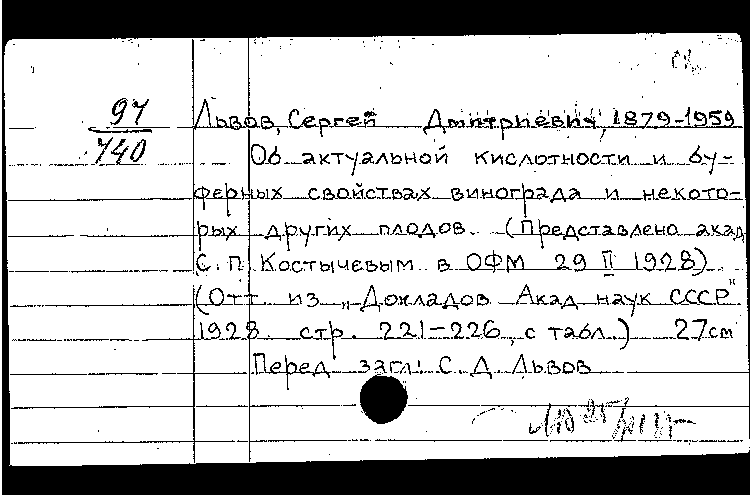 97
740
Львов, Сергей Дмитриевич, 1879-1959
Об актуальной кислотности и бу-
ферных свойствах винограда и некото-
рых других плодов. (Представлено акад.
С. П. Костычевым в ОФМ 29 II 1928)
(Отт. из „Докладов Акад наук СССР"
1928 стр. 221-226, с табл.) 27см
Перед загл: С. Д. Львов